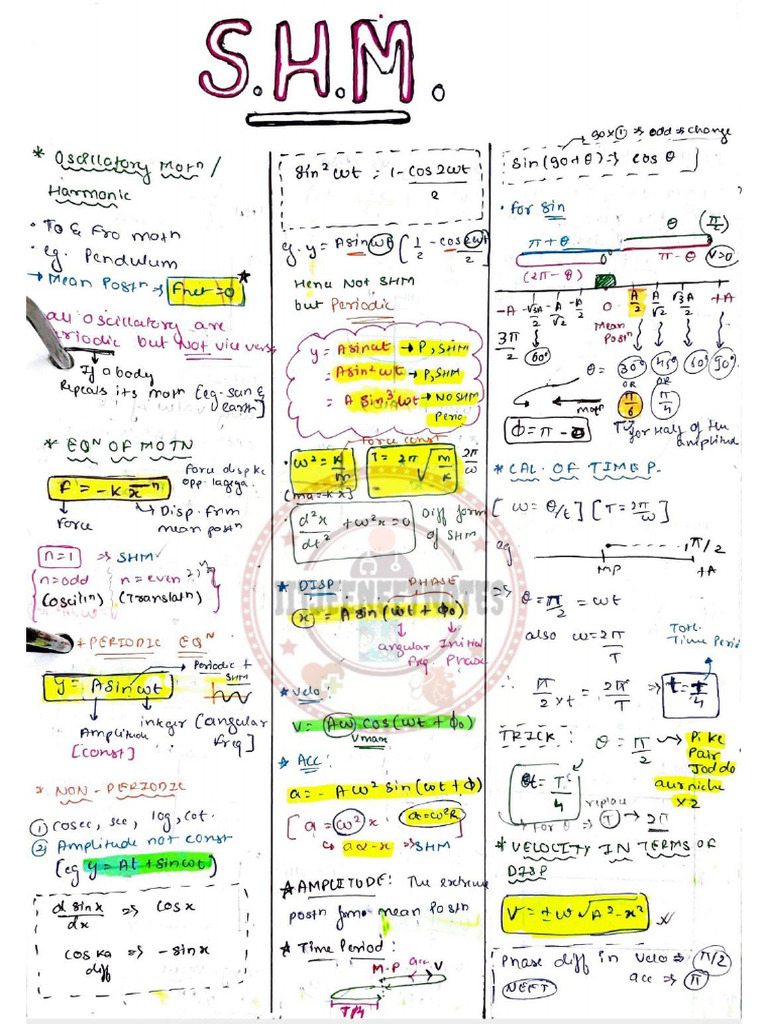 S.H.M.
* Oscillatory Motn /
Harmonic
• To & Fro motn
• eg. Pendulum
→ Mean Postn ⇒ Fnet = 0 *
all oscillatory are
periodic but Not vice versa
↳ If a body
Repeats its motn [eg-sun &
earth]
* EQN OF MOTN
Force disp ke
opp. lagega.
F = -k x^n
Force
↳ Disp. from
mean postn
n=1 ⇒ SHM
n=odd
(oscilln)
n=even
(Translatn)
* PERIODIC EQN
Periodic +
SHM
y = A sin ωt
Amplitude
[const]
integer [angular
freq]
* NON-PERIODIC
① cosec, sec, log, cot.
② Amplitude not const
(eg y = At + sin ωt)
d sin x / dx ⇒ cos x
cos ka diff ⇒ - sin x
sin² ωt = 1 - cos 2ωt / 2
eg. y = A sin ωt [1/2 - cos 2ωt / 2]
Hence Not SHM
but Periodic
y = A sin ωt → P, SHM
= A sin² ωt → P, SHM
= A sin³ ωt → NO SHM
Perio
Force const
• ω² = k/m
T = 2π √m/k
2π/ω
[ma = -kx]
• d²x/dt² + ω²x = 0
Diff form
of SHM
* DISP:
PHASE
x = A sin (ωt + ϕ₀)
angular
frq.
Initial
Phase
* Velo:
V = Aω cos(ωt + ϕ₀)
Vmax
* ACC:
a = - Aω² sin (ωt + ϕ)
[a = ω² x
a = ω²R
↳ a α -x ⇒ SHM
* AMPLITUDE: The extreme
postn from mean Postn
* Time Period:
M.P
acc
V
T/4
90×① ⇒ odd ⇒ change
sin (90+θ) ⇒ cos θ
• For sin
θ
π/2
π+θ
0°
π-θ
V>0
(2π-θ)
-A
-√3A/2
-A/√2
-A/2
0
A/2
A/√2
√3A/2
+A
Mean
Postn
3π/2
60°
θ =
30°
45°
60°
90°
OR
OR
π/6
π/4
motn
ϕ = π - θ
for half of the
amplitude
* CAL. OF TIME P.
[ω = θ/t] [T = 2π/ω]
eg
π/2
MP
+A
⇒ θ = π/2 = ωt
also ω = 2π/T
Totl.
Time Period
∴ π/2×t = 2π/T ⇒ t = T/4
TRICK:
θ = π/2
Pi ke
Pair
Jod do
aur niche
x2
t = T/4
replace
For θ ⇒ T → 2π
* VELOCITY IN TERMS OF
DISP
V = ±ω √A²-x²
Phase diff in Velo ⇒ π/2
acc ⇒ π
NEET